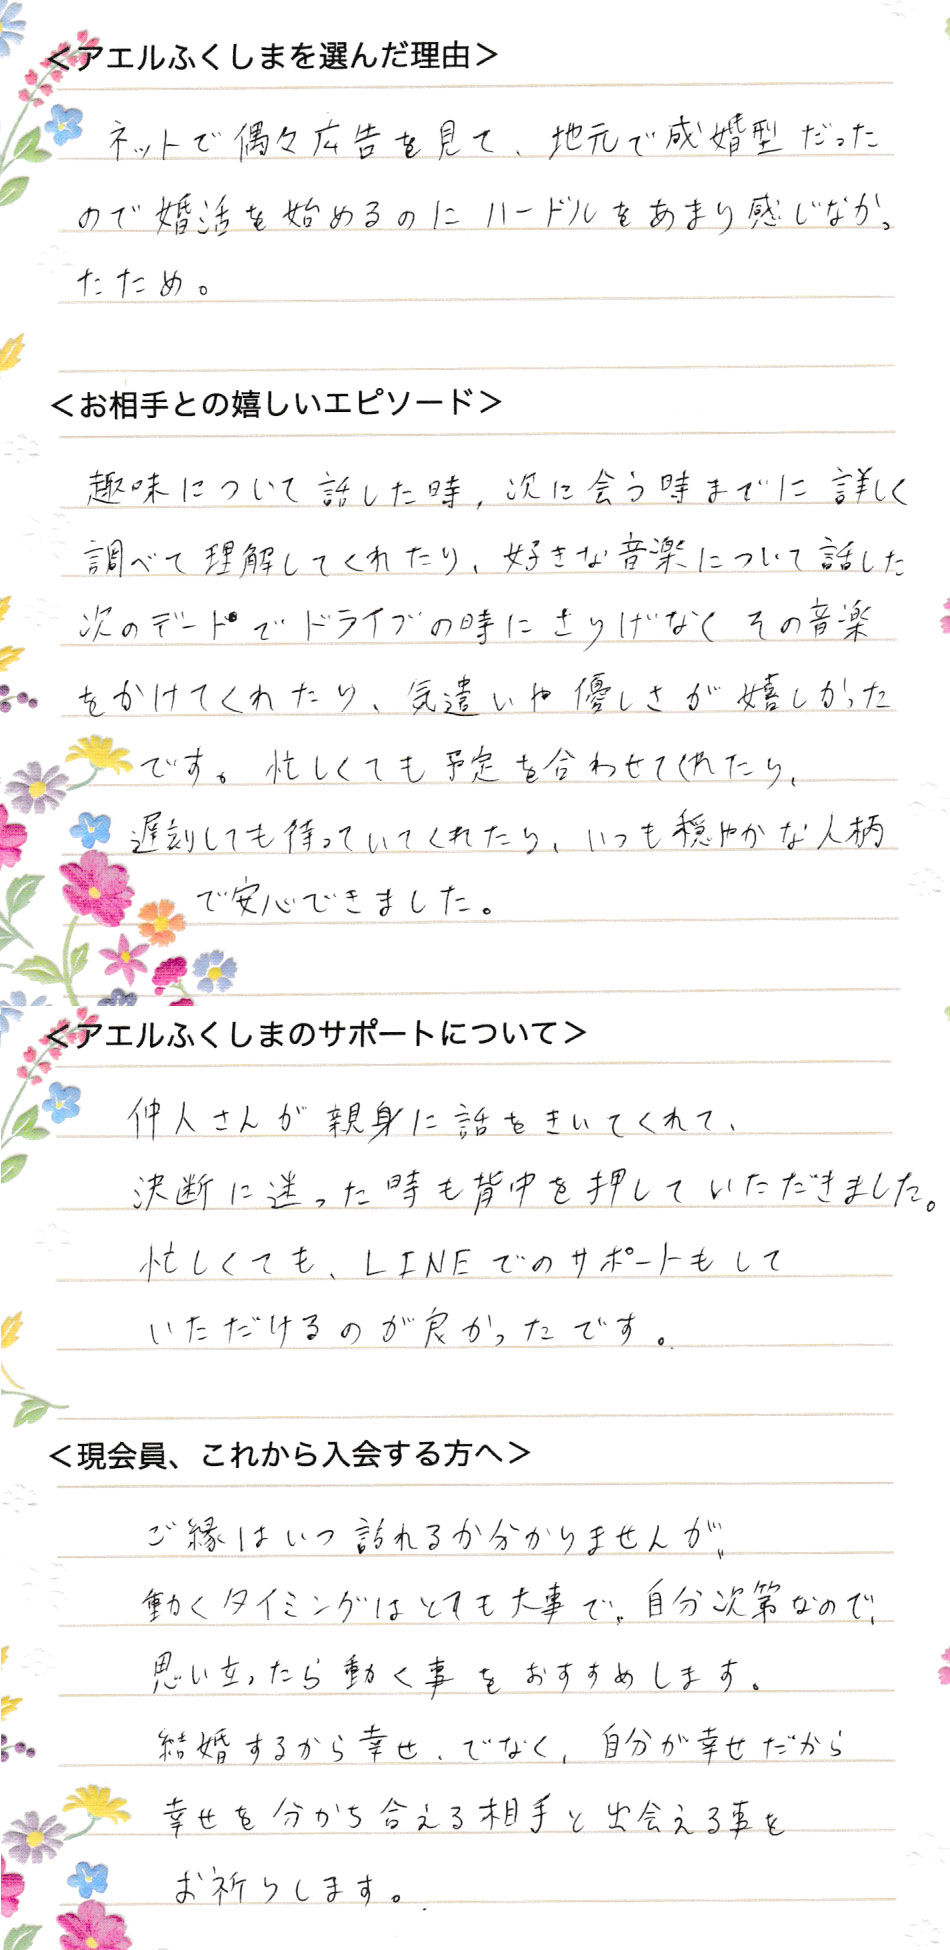 ＜アエルふくしまを選んだ理由＞
ネットで偶々広告を見て、地元で成婚型だった
ので婚活を始めるのにハードルをあまり感じなかっ
たため。
＜お相手との嬉しいエピソード＞
趣味について話した時、次に会う時までに詳しく
調べて理解してくれたり、好きな音楽について話した
次のデートでドライブの時にさりげなくその音楽
をかけてくれたり、気遣いや優しさが嬉しかった
です。忙しくても予定を合わせてくれたり、
遅刻しても待っていてくれたり、いつも穏やかな人柄
で安心できました。
＜アエルふくしまのサポートについて＞
仲人さんが親身に話をきいてくれて、
決断に迷った時も背中を押していただきました。
忙しくても、LINEでのサポートもして
いただけるのが良かったです。
＜現会員、これから入会する方へ＞
ご縁はいつ訪れるか分かりませんが、
動くタイミングはとても大事で、自分次第なので、
思い立ったら動く事をおすすめします。
結婚するから幸せ、でなく、自分が幸せだから
幸せを分かち合える相手と出会える事を
お祈りします。